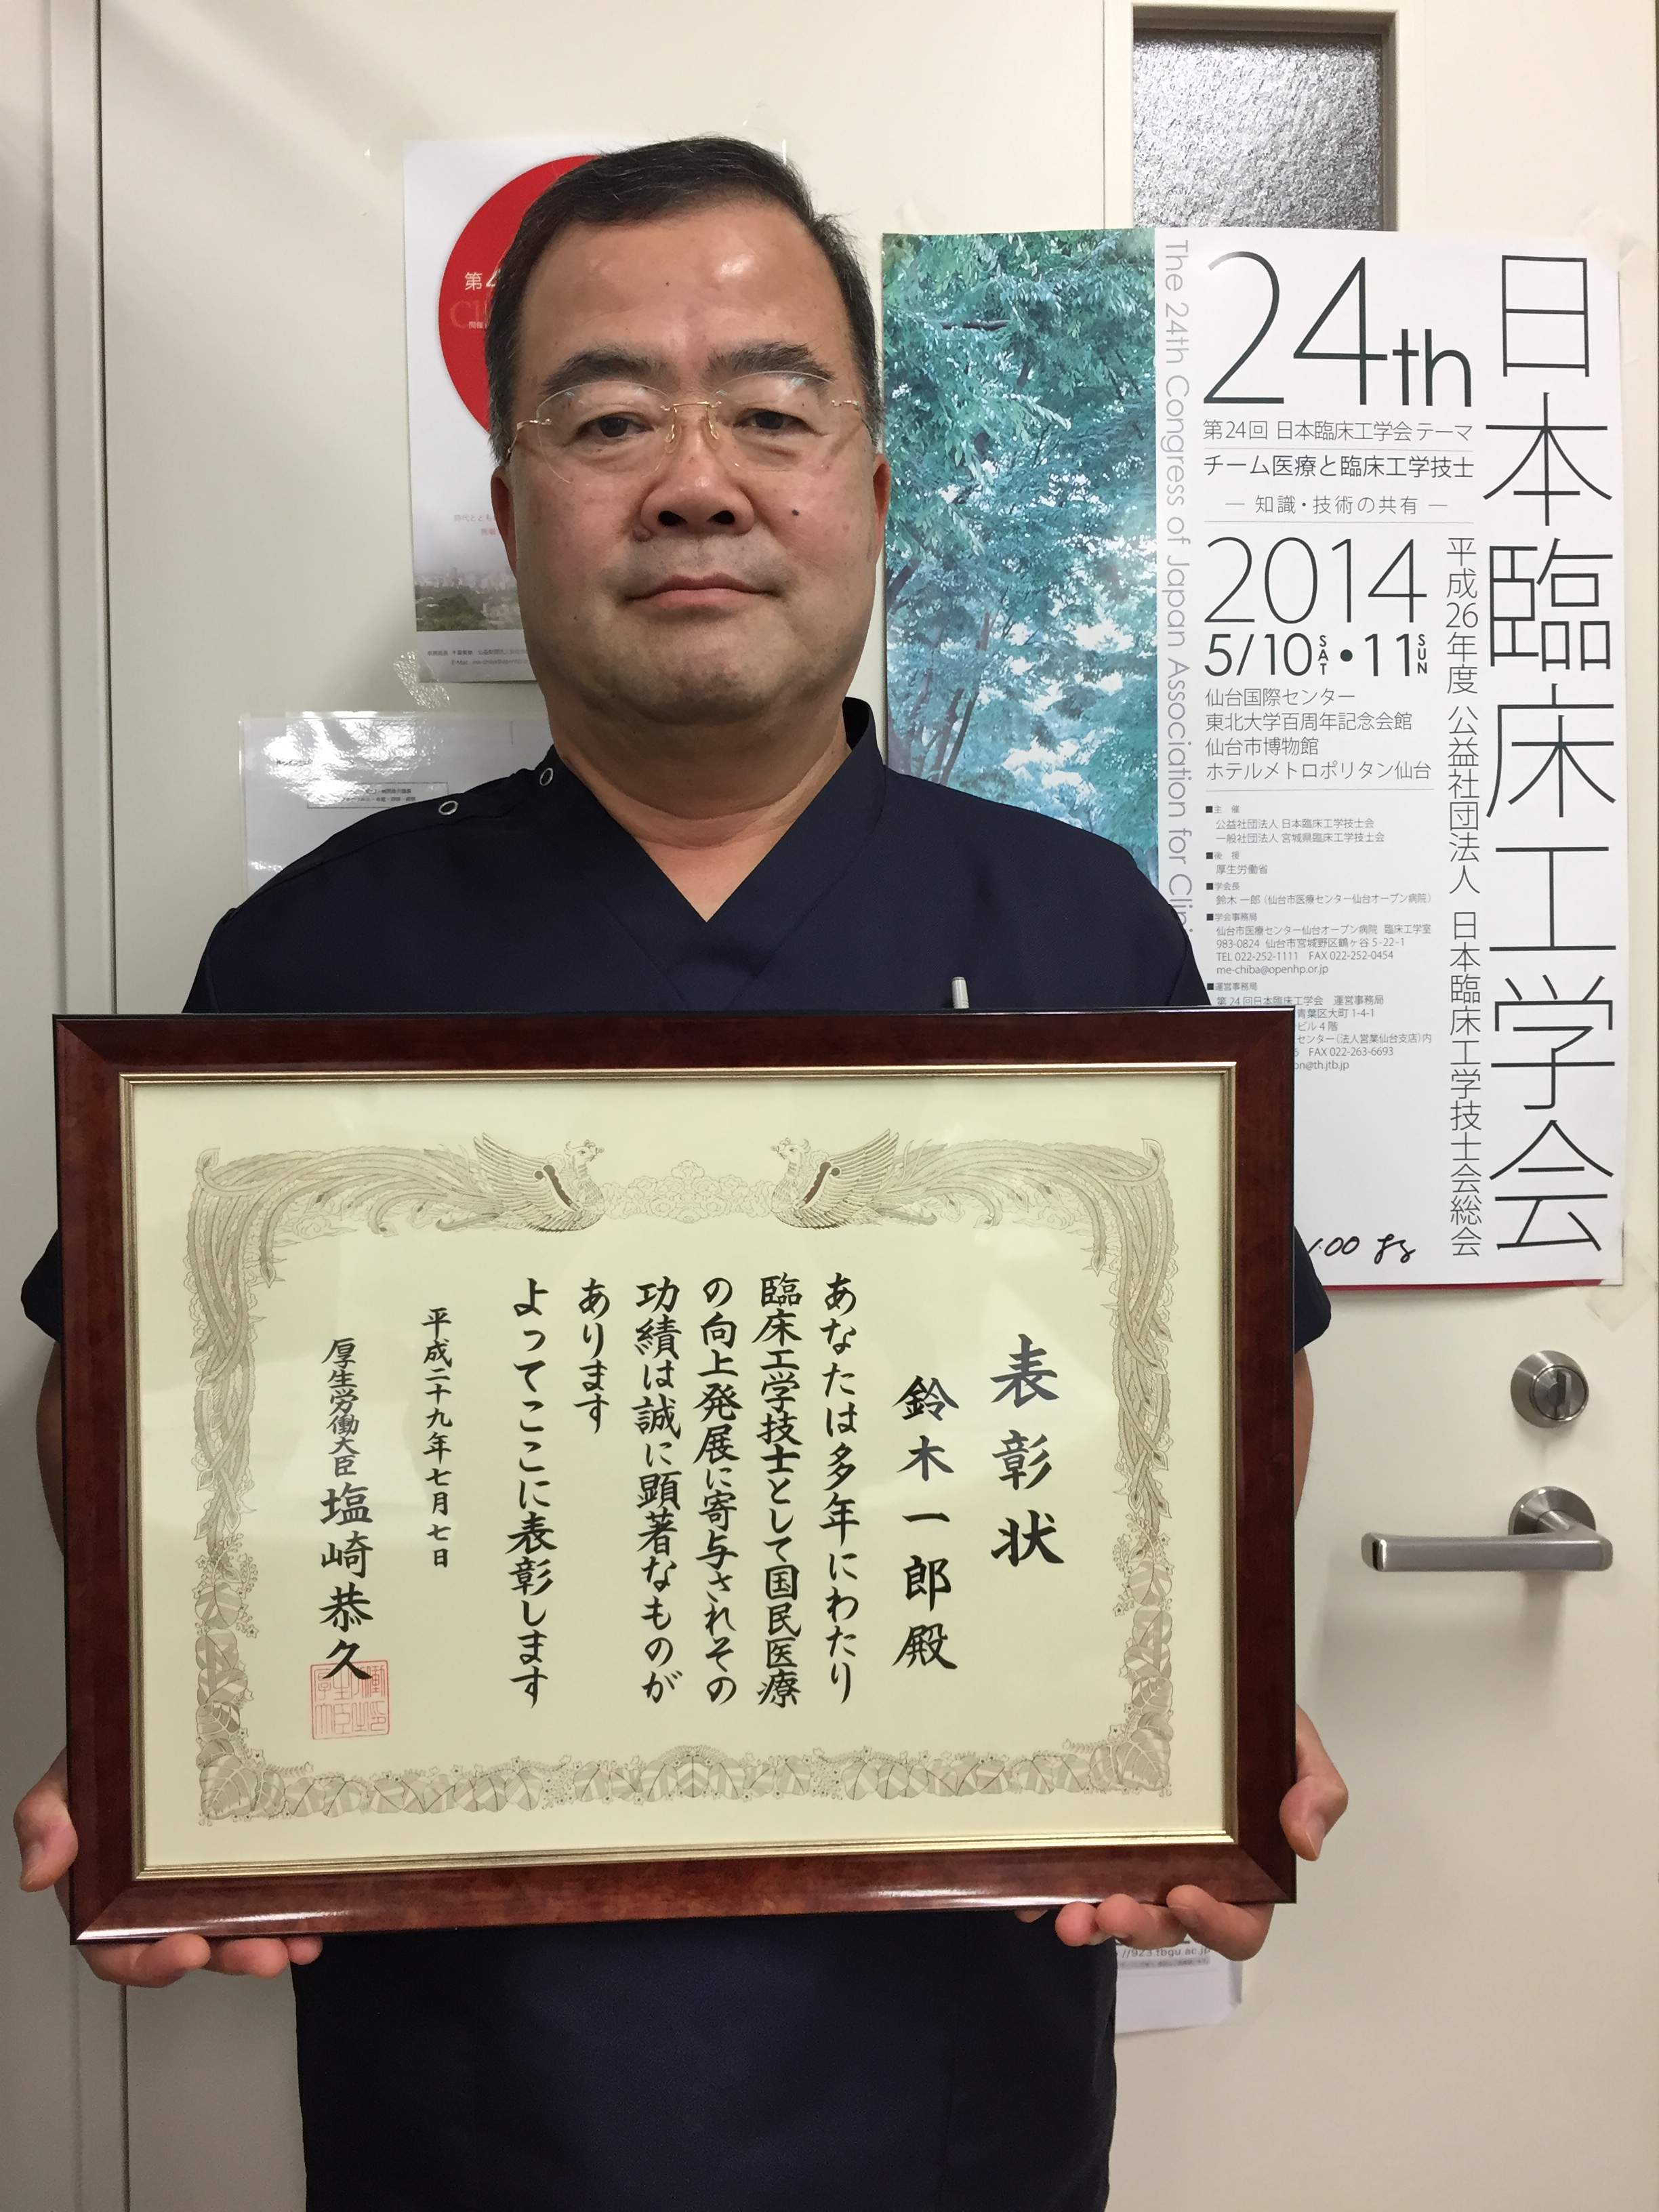 表彰状
鈴木一郎殿
あなたは多年にわたり
臨床工学技士として国民医療
の向上発展に寄与されその
功績は誠に顕著なものが
あります
よってここに表彰します
平成二十九年七月七日
厚生労働大臣 塩崎恭久
日本臨床工学会
平成26年度 公益社団法人 日本臨床工学技士会総会
24th
第24回 日本臨床工学会 テーマ
チーム医療と臨床工学技士
— 知識・技術の共有 —
2014
5/10 SAT • 11 SUN
仙台国際センター
東北大学百周年記念会館
仙台市博物館
ホテルメトロポリタン仙台
■主 催
公益社団法人 日本臨床工学技士会
一般社団法人 宮城県臨床工学技士会
■後 援
厚生労働省
■学会長
鈴木 一郎（仙台市医療センター仙台オープン病院）
■学会事務局
仙台市医療センター仙台オープン病院 臨床工学室
983-0824 仙台市宮城野区鶴ヶ谷 5-22-1
TEL 022-252-1111 FAX 022-252-0454
me-chiba@openhp.or.jp
■運営事務局
第 24 回日本臨床工学会 運営事務局
青葉区大町 1-4-1
ビル 4 階
センター（法人営業仙台支店）内
FAX 022-263-6693
on@th.jtb.jp
The 24th Congress of Japan Association for Clini
第
//923.tbgu.ac.jp